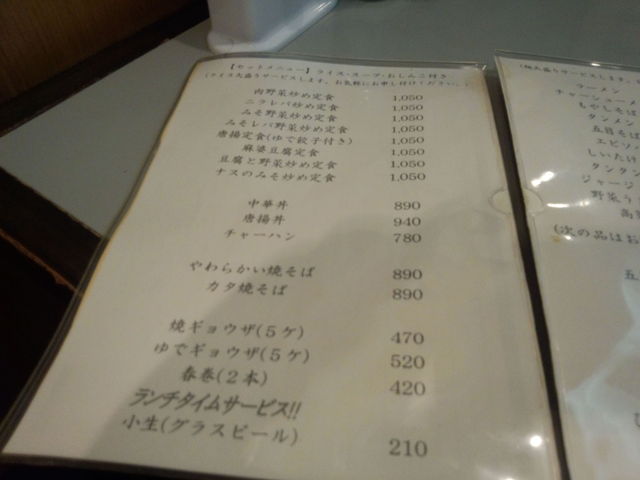 【セットメニュー】ライス・スープ・おしんこ付き
(ライス大盛りサービスします。お気軽にお申し付けください。)
肉野菜炒め定食 1,050
ニラレバ炒め定食 1,050
みそ野菜炒め定食 1,050
みそレバ野菜炒め定食 1,050
唐揚定食(ゆで餃子付き) 1,050
麻婆豆腐定食 1,050
豆腐と野菜炒め定食 1,050
ナスのみそ炒め定食 1,050
中華丼 890
唐揚丼 940
チャーハン 780
やわらかい焼そば 890
カタ焼そば 890
焼ギョウザ(5ケ) 470
ゆでギョウザ(5ケ) 520
春巻(2本) 420
ランチタイムサービス!!
小生(グラスビール) 210
(麺大盛りサービスします。
ラーメン
チャーシューメ
もやしそば
タンメン
五目そば
エビソバ
しいたけ
タンタン
ジャージ
野菜う
(次の品はお
五